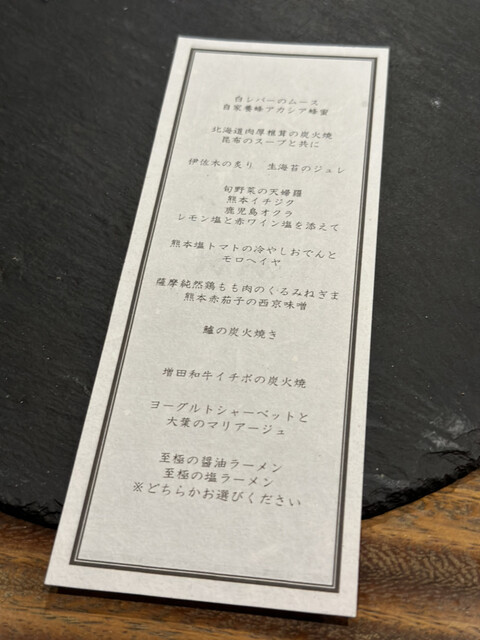 白レバーのムース
自家養蜂アカシア蜂蜜
北海道肉厚椎茸の炭火焼
昆布のスープと共に
伊佐木の炙り　生海苔のジュレ
旬野菜の天婦羅
熊本イチジク
鹿児島オクラ
レモン塩と赤ワイン塩を添えて
熊本塩トマトの冷やしおでんと
モロヘイヤ
薩摩純然鶏もも肉のくるみねぎま
熊本赤茄子の西京味噌
鱸の炭火焼き
増田和牛イチボの炭火焼
ヨーグルトシャーベットと
大葉のマリアージュ
至極の醤油ラーメン
至極の塩ラーメン
※どちらかお選びください